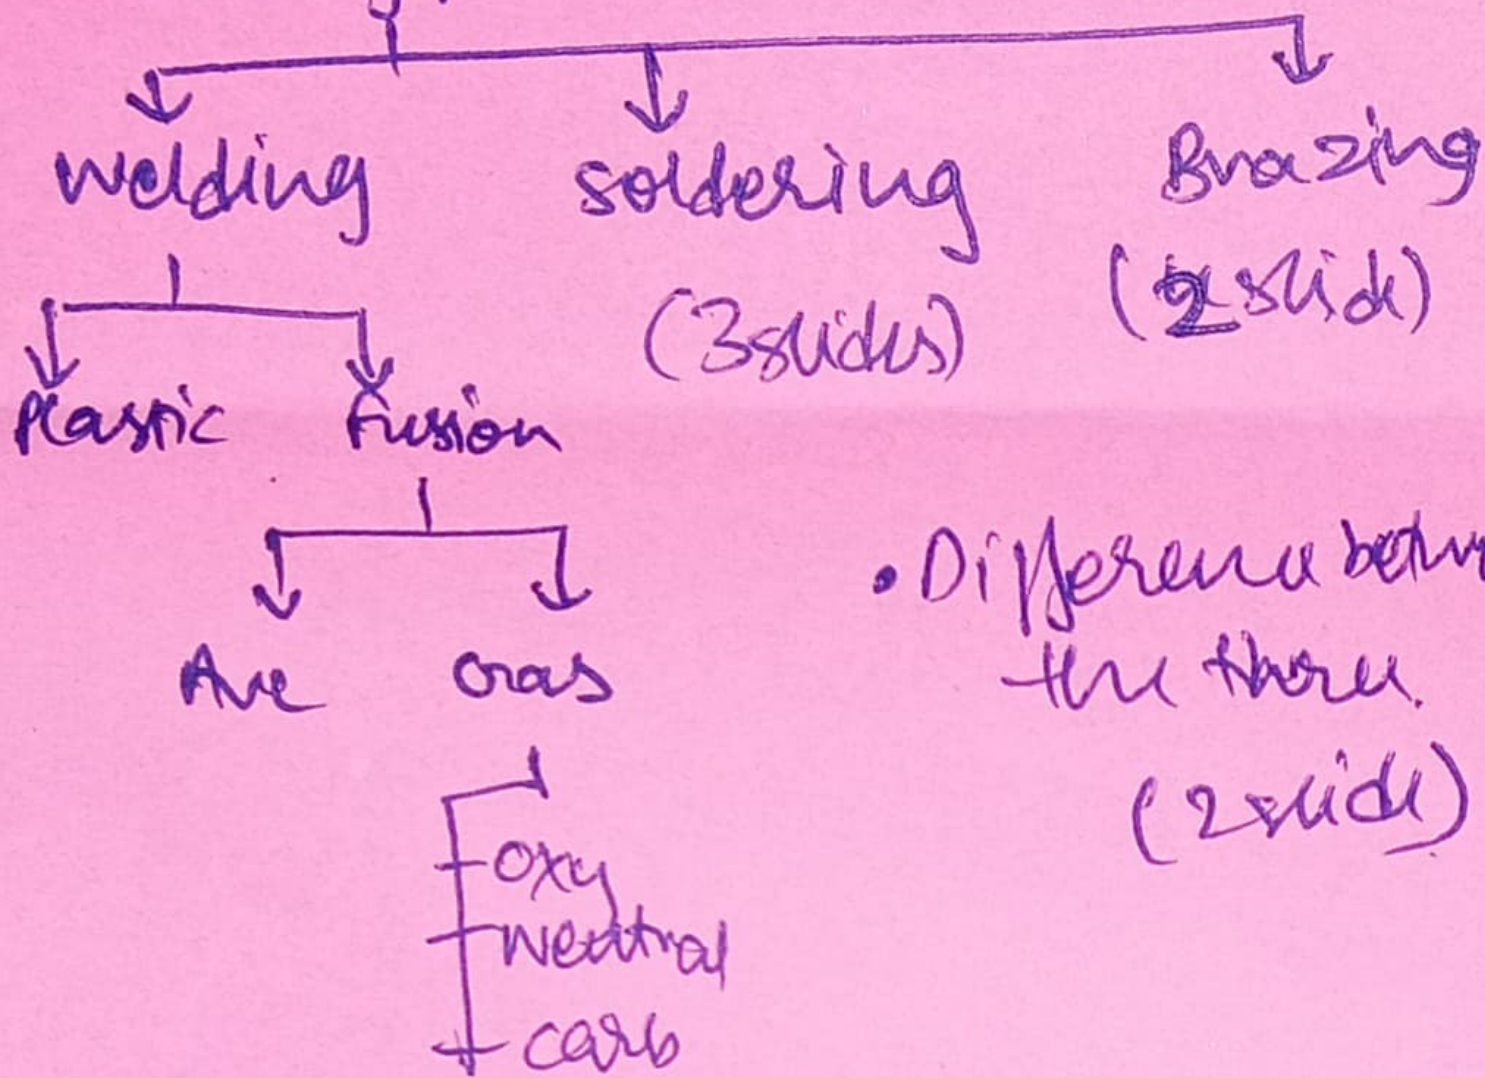 welding soldering Brazing
(3 slides) (2 slide)
Plastic Fusion
• Difference betw
the three.
Arc Gas
(2 slide)
oxy
Neutral
carb